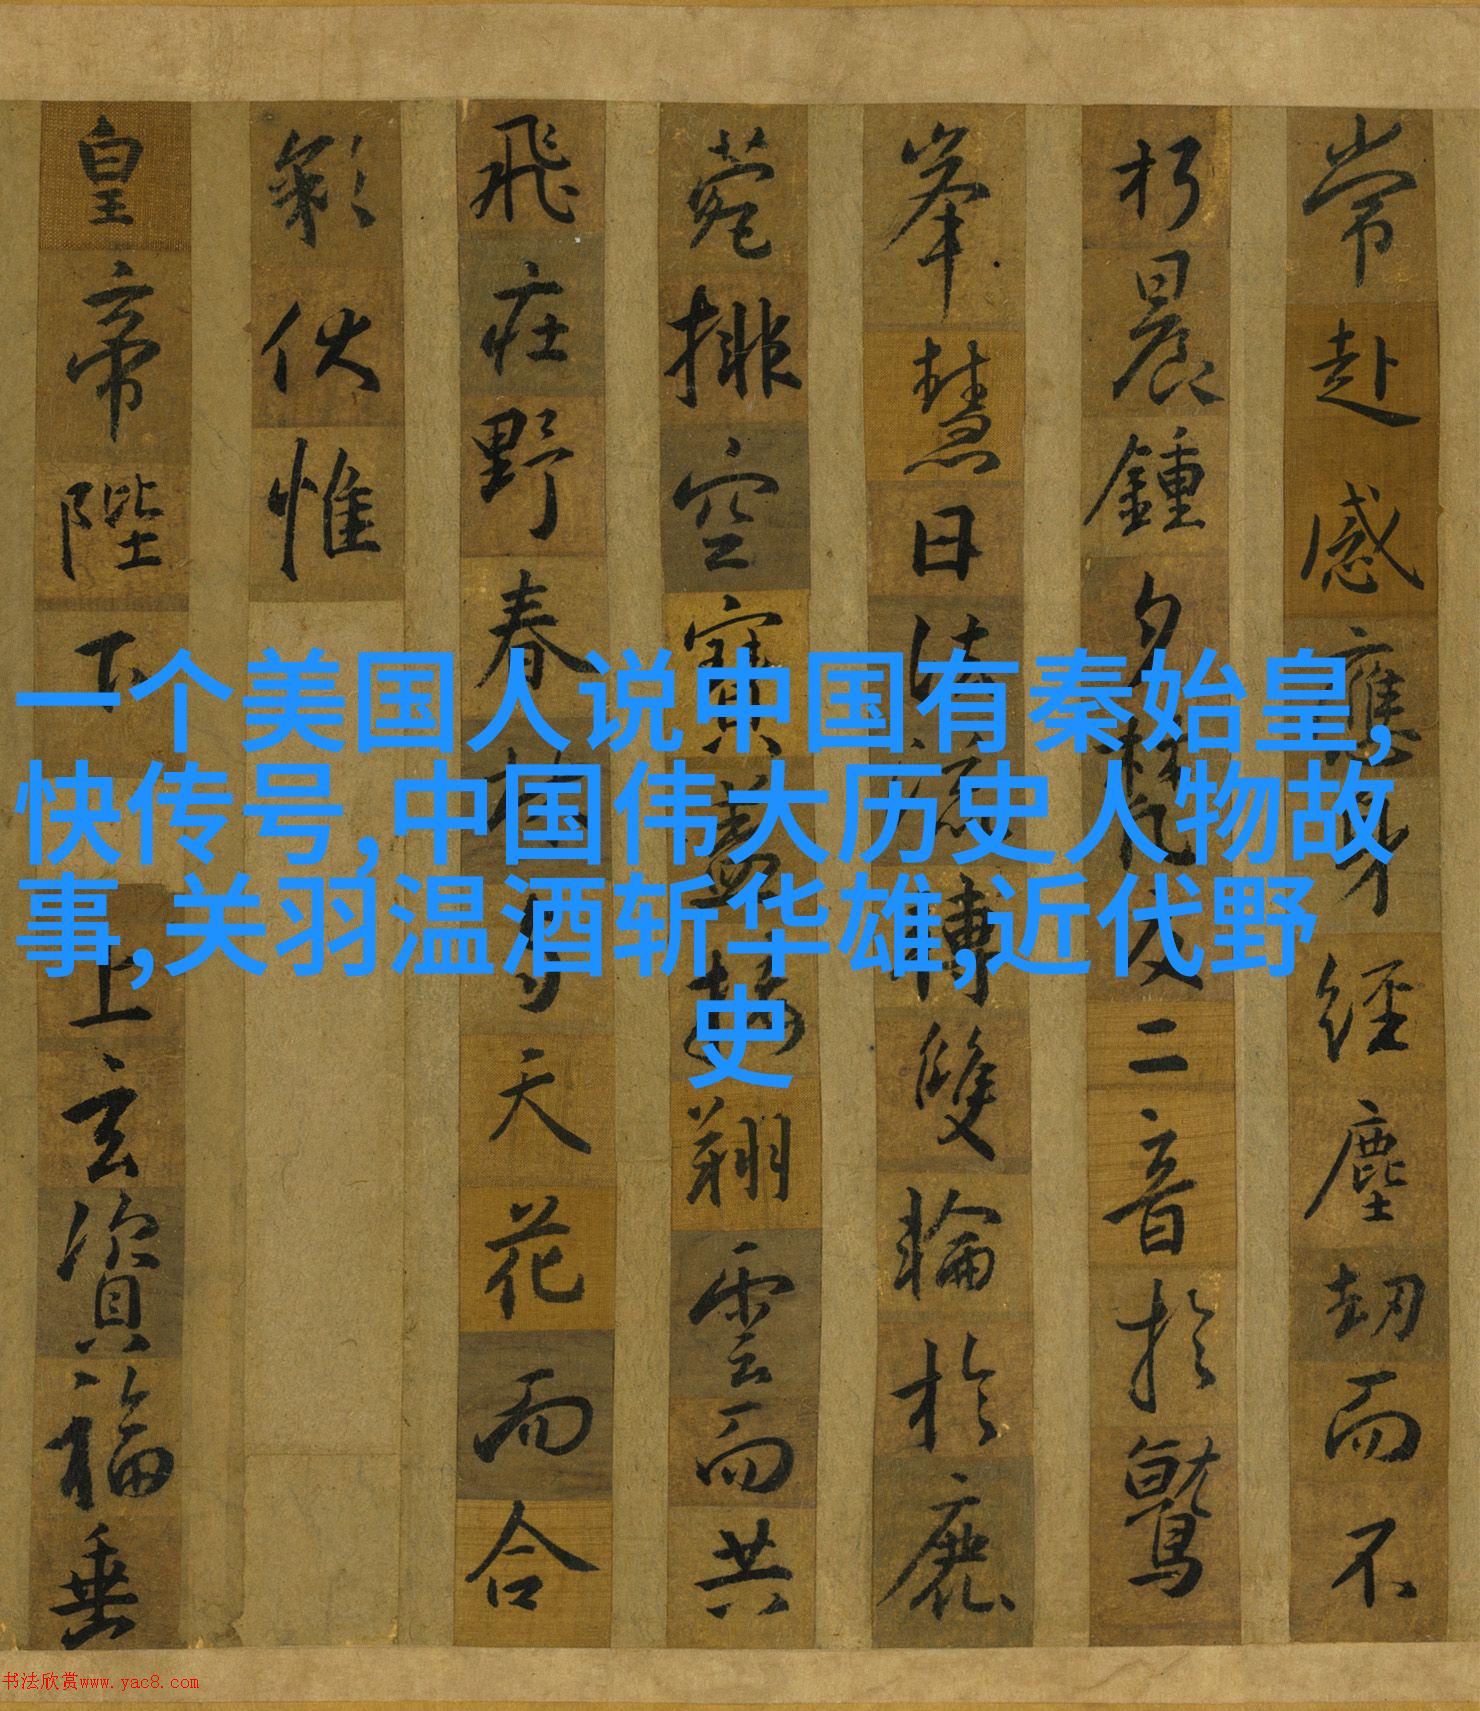 常赴感應身經塵劫而不
朽晨鍾夕梵交二音於鷲
峯慧日法流轉雙輪於鹿
菀排空寶蓋接翔雲而共
飛莊野春林與天花而合
彩伏惟
皇帝陛下上玄資福垂
一个美国人说中国有秦始皇,
快传号,中国伟大历史人物故
事,关羽温酒斩华雄,近代野
史
书法欣赏www.yac8.com